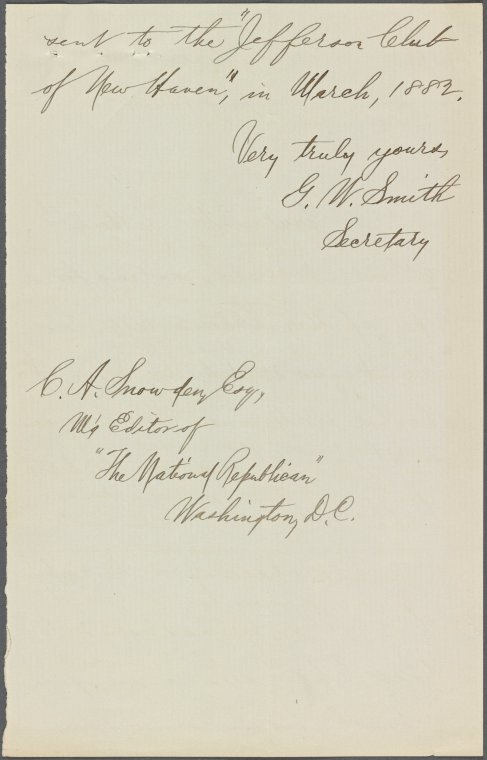 sent to the "Jefferson Club
of New Haven", in March, 1882.
Very truly yours,
G. W. Smith
Secretary
C. A. Snowden, Esq,
M'g Editor of
"The National Republican"
Washington, D.C.